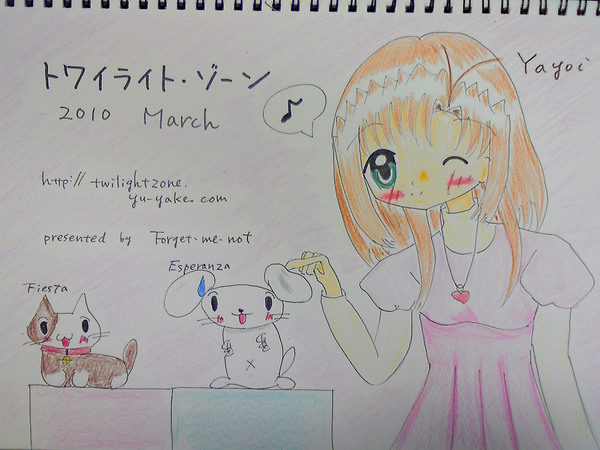 トワイライト・ゾーン
2010 March
Yayoi
http:// twilightzone.
yu-yake.com
presented by Forget-me-not
Esperanza
Fiesta